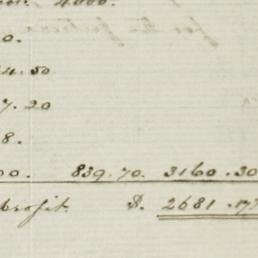 4000.
0.
4.50
7.20
8.
00. 839.70. 3160.30
profit $. 2681.17